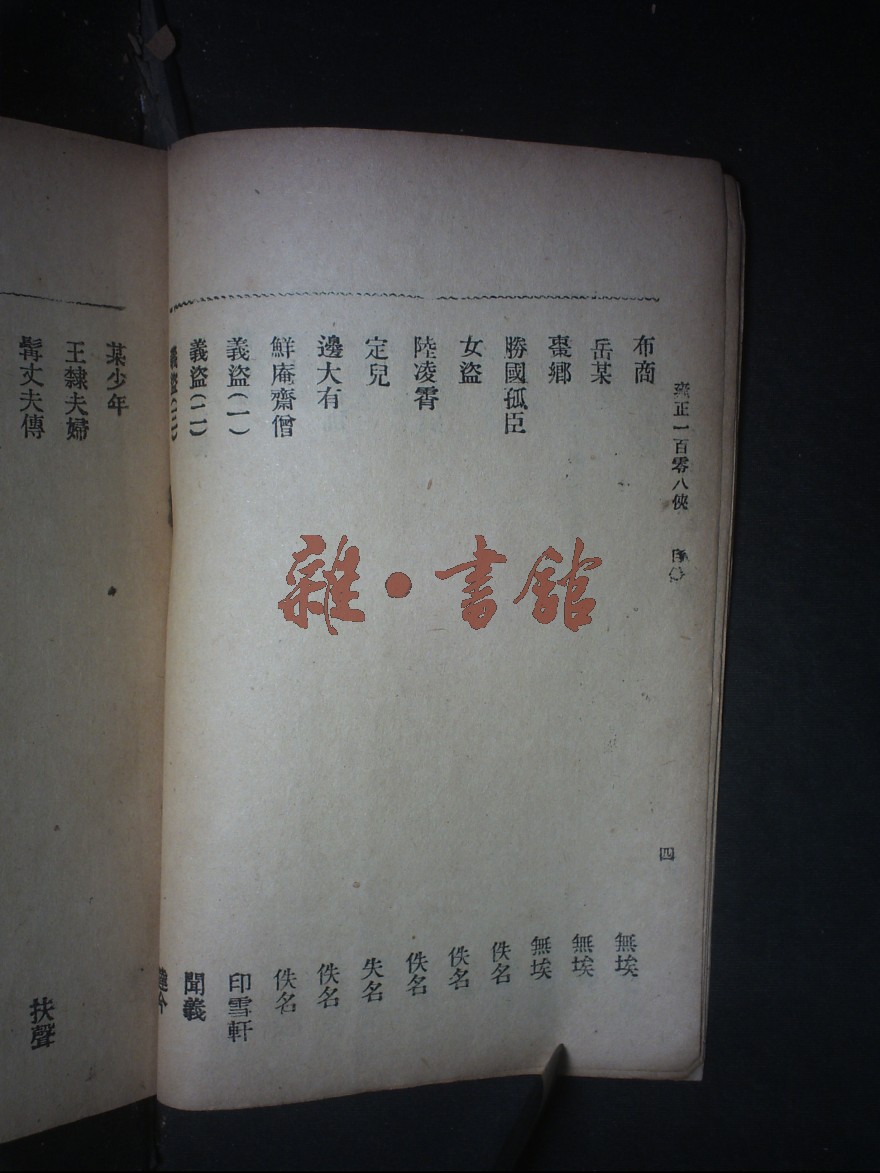 齊正一百零八俠 目
四
布商 無埃
岳某 無埃
棗鄉 無埃
勝國孤臣 佚名
女盜 佚名
陸凌霄 佚名
定兒 失名
邊大有 佚名
鮮庵齋僧 佚名
義盜(一) 印雪軒
義盜(二) 聞義
義盜(三)
某少年
王隸夫婦
髯丈夫傳 扶聲
雜·書館